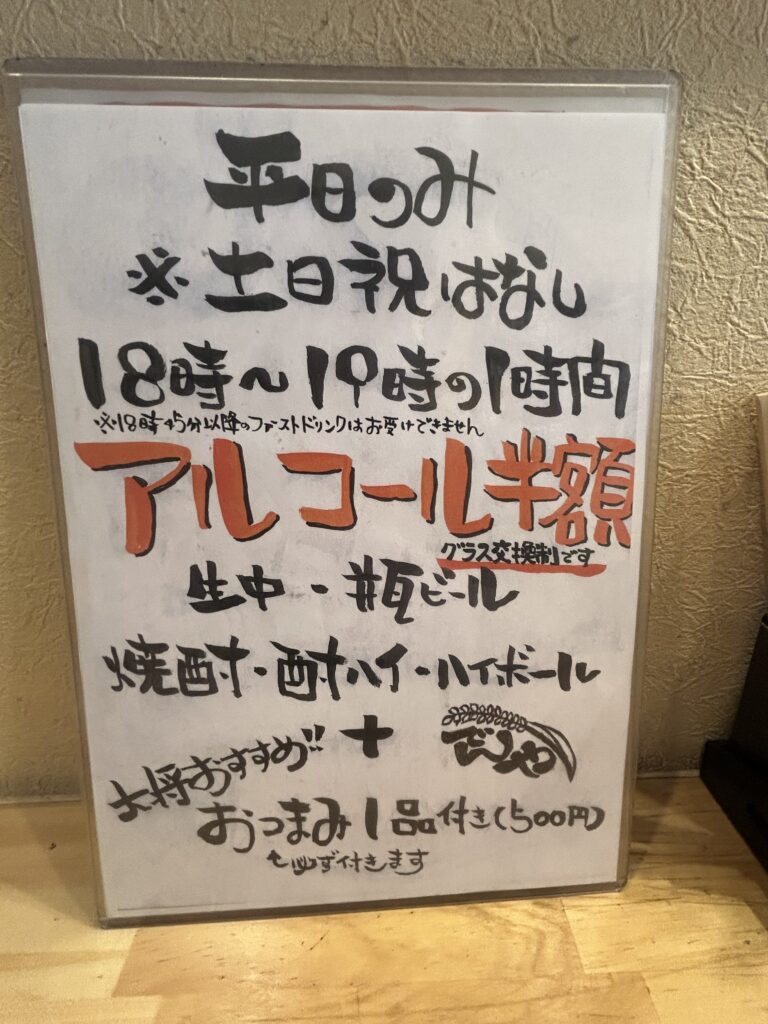 平日のみ
※土日祝はなし
18時〜19時の1時間
※18時45分以降のファーストドリンクはお受けできません
アルコール半額
グラス交換制です
生中・瓶ビール
焼酎・酎ハイ・ハイボール
+
大将おすすめ!!
おつまみ1品付き(500円)
必ず付きます